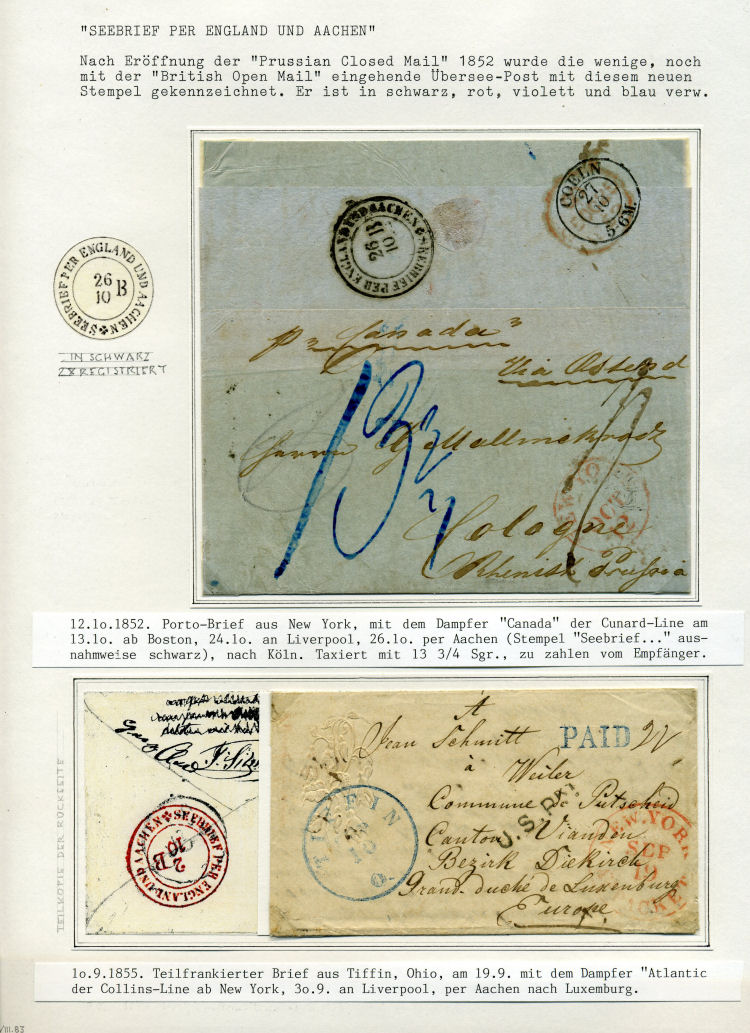 "SEEBRIEF PER ENGLAND UND AACHEN"
Nach Eröffnung der "Prussian Closed Mail" 1852 wurde die wenige, noch
mit der "British Open Mail" eingehende Übersee-Post mit diesem neuen
Stempel gekennzeichnet. Er ist in schwarz, rot, violett und blau verw.
SEEBRIEF PER ENGLAND UND AACHEN
26
10 B
IN SCHWARZ
2X REGISTRIERT
SEEBRIEF PER ENGLAND UND AACHEN
26
10 B
COELN
27
10
5-6M.
pr "Canada"
Via Ostend
13 3/4
Herrn
Cologne
Rhenish Prussia
NEW YO
OCT
12
12.1o.1852. Porto-Brief aus New York, mit dem Dampfer "Canada" der Cunard-Line am
13.1o. ab Boston, 24.1o. an Liverpool, 26.1o. per Aachen (Stempel "Seebrief..." aus-
nahmsweise schwarz), nach Köln. Taxiert mit 13 3/4 Sgr., zu zahlen vom Empfänger.
TEILKOPIE DER RÜCKSEITE
SEEBRIEF PER ENGLAND UND AACHEN
2 B
10
A
Jean Schmitt
PAID
à
Weiler
Commune de Putscheid
Canton Vianden
Bezirk Diekirch
Grand-duché de Luxenburg
Europe
U.S.Pkt
TIFFIN
10
O.
NEW YORK
SEP
19
PACKET
1o.9.1855. Teilfrankierter Brief aus Tiffin, Ohio, am 19.9. mit dem Dampfer "Atlantic
der Collins-Line ab New York, 3o.9. an Liverpool, per Aachen nach Luxemburg.
/III.83